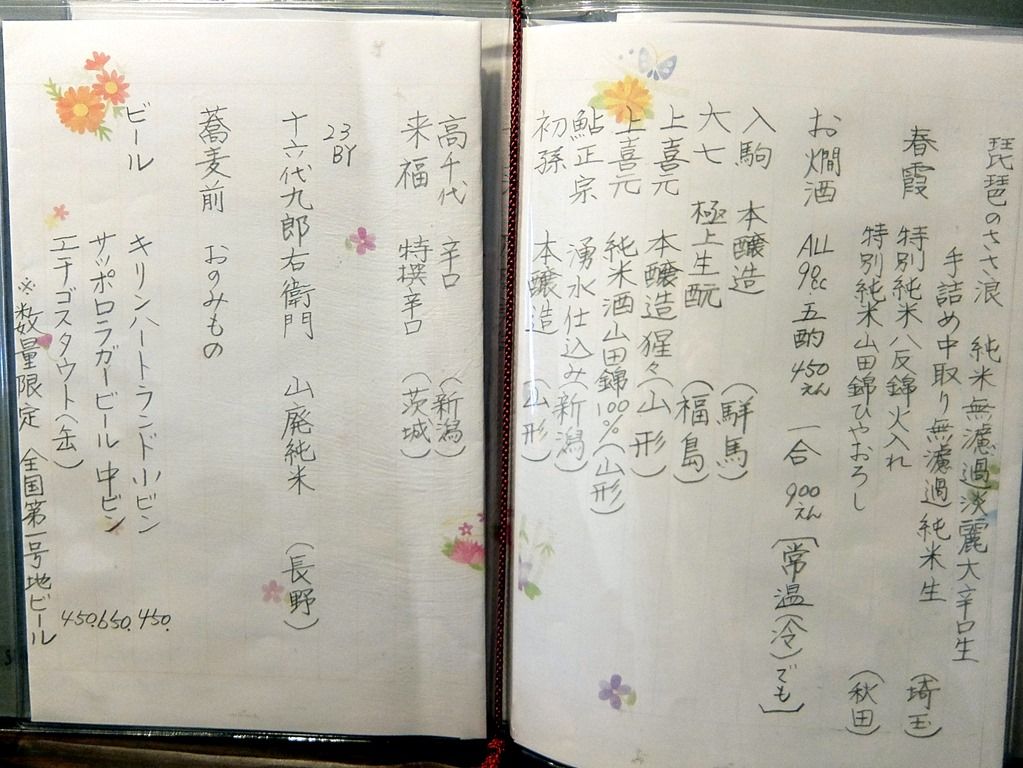 琵琶のささ浪 純米無濾過淡麗大辛口生
手詰め中取り無濾過純米生 (埼玉)
春霞 特別純米八反錦火入れ
特別純米山田錦ひやおろし (秋田)
お燗酒 ALL 90cc 五酌 450えん 一合 900えん [常温(冷)でも]
入駒 本醸造 (群馬)
大七 極上生酛 (福島)
上喜元 本醸造猩々 (山形)
上喜元 純米酒山田錦100% (山形)
鮎正宗 湧水仕込み (新潟)
初孫 本醸造 (山形)
高千代 辛口 (新潟)
来福 特撰辛口 (茨城)
23BY
十六代九郎右衛門 山廃純米 (長野)
蕎麦前 おのみもの
ビール キリンハートランド小ビン 450.
サッポロラガービール中ビン 650.
エチゴスタウト(缶) 450.
※数量限定 全国第一号地ビール